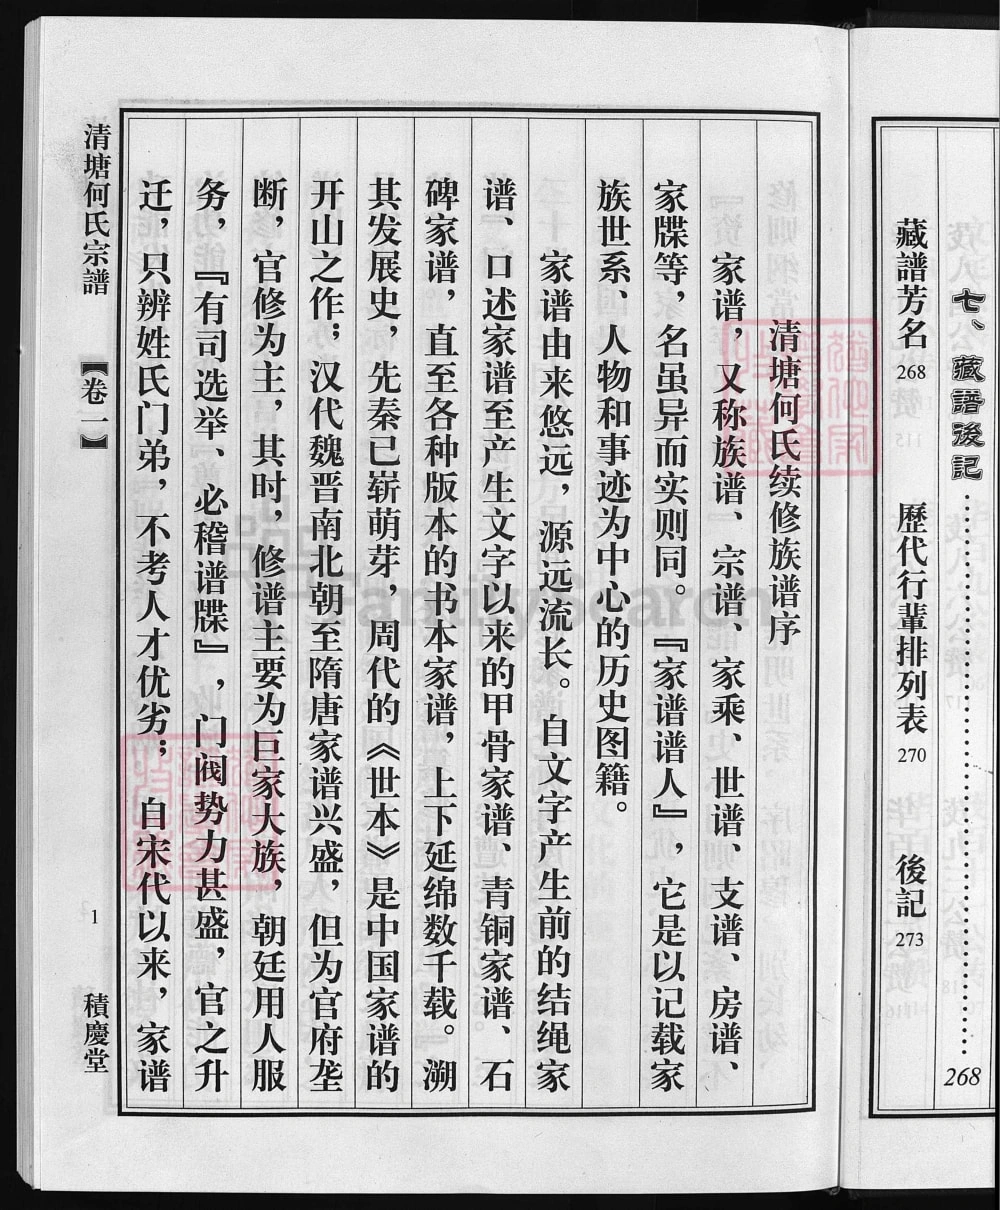 七、藏譜後記……………………………268
藏譜芳名268 歷代行輩排列表270 後記273
清塘何氏续修族谱序
家谱，又称族谱、宗谱、家乘、世谱、支谱、房谱、
家牒等，名虽异而实则同。『家谱谱人』，它是以记载家
族世系、人物和事迹为中心的历史图籍。
家谱由来悠远，源远流长。自文字产生前的结绳家
谱、口述家谱至产生文字以来的甲骨家谱、青铜家谱、石
碑家谱，直至各种版本的书本家谱，上下延绵数千载。溯
其发展史，先秦已崭萌芽，周代的《世本》是中国家谱的
开山之作；汉代魏晋南北朝至隋唐家谱兴盛，但为官府垄
断，官修为主，其时，修谱主要为巨家大族，朝廷用人服
务，『有司选举、必稽谱牒』，门阀势力甚盛，官之升
迁，只辨姓氏门弟，不考人才优劣；自宋代以来，家谱
清塘何氏宗譜 【卷一】 1 積慶堂
FamilySearch